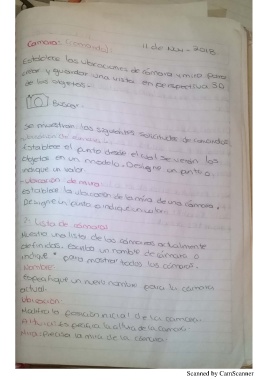 Camara: (comando) 11 de Nov - 2018
Establece las ubicaciones de cámara y mira para
crear y guardar una vista en perspectiva 3D
de los objetos.-
Buscar.-
Se muestran las siguientes solicitudes de comandos
- Ubicación de cámara.-
Establece el punto desde el cual se veran los
objetos en un modelo. Designe un punto o
indique un valor.
- Ubicación de mira:
establece la ubicación de la mira de una cámara.
Designe un punto o indique un valor.
2. Lista de cámaras
Muestra una lista de las cámaras actualmente
definidas. Escriba un nombre de cámara o
indique * para mostrar todas las cámaras.
Nombre:
Especifique un nuevo nombre para la camara
actual.
Ubicación:
Modifica la posición inicial de la camara.
Altura: Especifica la altura de la camara
Mira: precisa la mira de la cámara.
Scanned by CamScanner